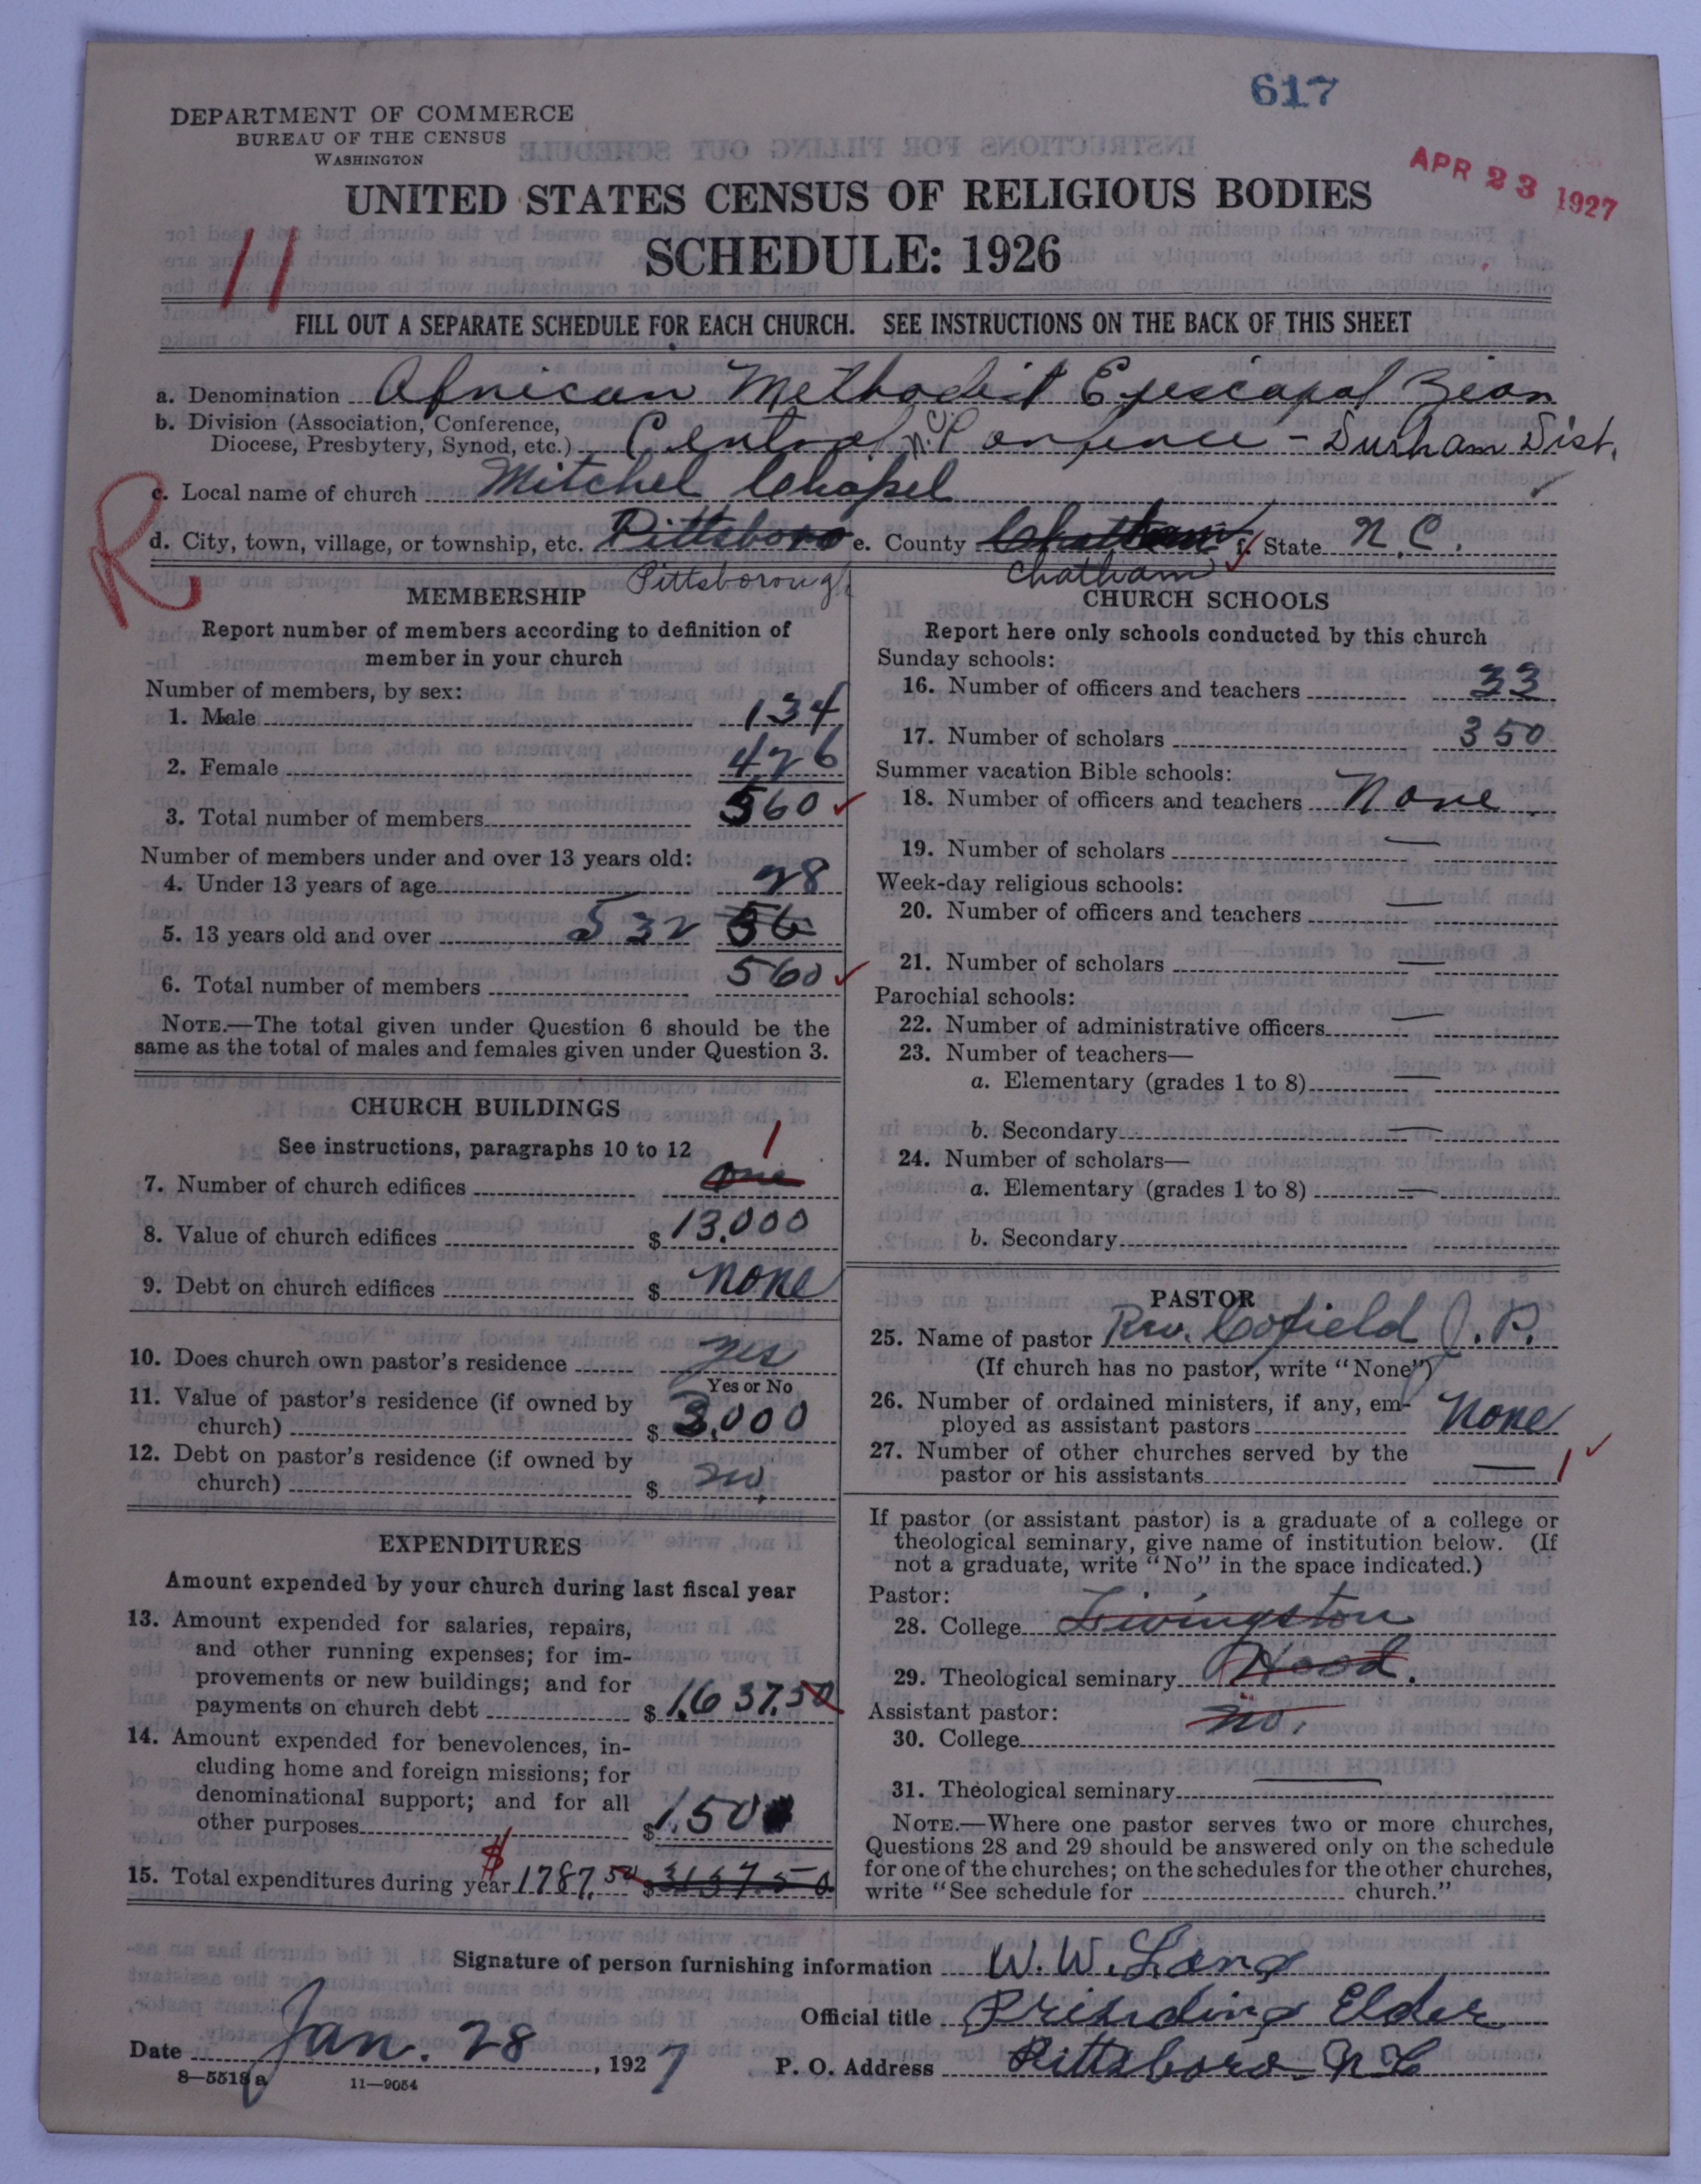 617
DEPARTMENT OF COMMERCE
BUREAU OF THE CENSUS
WASHINGTON
APR 23 1927
UNITED STATES CENSUS OF RELIGIOUS BODIES
SCHEDULE: 1926
11
FILL OUT A SEPARATE SCHEDULE FOR EACH CHURCH. SEE INSTRUCTIONS ON THE BACK OF THIS SHEET
a. Denomination African Methodist Episcopal Zion
b. Division (Association, Conference,
Diocese, Presbytery, Synod, etc.) Central N.C. Conference - Durham Dist.
c. Local name of church Mitchel Chapel
R
d. City, town, village, or township, etc. Pittsboro e. County Chatham f. State N.C.
Pittsborough Chatham
MEMBERSHIP
Report number of members according to definition of
member in your church
Number of members, by sex:
1. Male 134
2. Female 426
3. Total number of members 560
Number of members under and over 13 years old:
4. Under 13 years of age 28
5. 13 years old and over 532 56
6. Total number of members 560
NOTE.—The total given under Question 6 should be the
same as the total of males and females given under Question 3.
CHURCH BUILDINGS
See instructions, paragraphs 10 to 12
1
7. Number of church edifices one
8. Value of church edifices $ 13,000
9. Debt on church edifices $ none
10. Does church own pastor's residence yes
Yes or No
11. Value of pastor's residence (if owned by
church) $ 3,000
12. Debt on pastor's residence (if owned by
church) $ no
EXPENDITURES
Amount expended by your church during last fiscal year
13. Amount expended for salaries, repairs,
and other running expenses; for im-
provements or new buildings; and for
payments on church debt $ 1,637.50
14. Amount expended for benevolences, in-
cluding home and foreign missions; for
denominational support; and for all
other purposes $ 1.50
15. Total expenditures during year $ 1787.50 $ 3137.50
CHURCH SCHOOLS
Report here only schools conducted by this church
Sunday schools:
16. Number of officers and teachers 33
17. Number of scholars 350
Summer vacation Bible schools:
18. Number of officers and teachers None
19. Number of scholars —
Week-day religious schools:
20. Number of officers and teachers —
21. Number of scholars —
Parochial schools:
22. Number of administrative officers —
23. Number of teachers—
a. Elementary (grades 1 to 8) —
b. Secondary —
24. Number of scholars—
a. Elementary (grades 1 to 8) —
b. Secondary
PASTOR
25. Name of pastor Rev. Cofield J. P.
(If church has no pastor, write "None")
26. Number of ordained ministers, if any, em-
ployed as assistant pastors None
27. Number of other churches served by the
pastor or his assistants — 1
If pastor (or assistant pastor) is a graduate of a college or
theological seminary, give name of institution below. (If
not a graduate, write "No" in the space indicated.)
Pastor:
28. College Livingston
29. Theological seminary Hood.
Assistant pastor:
30. College no.
31. Theological seminary —
NOTE.—Where one pastor serves two or more churches,
Questions 28 and 29 should be answered only on the schedule
for one of the churches; on the schedules for the other churches,
write "See schedule for church."
Signature of person furnishing information W. W. Long
Official title Prisiding Elder
Date Jan. 28, 1927 P. O. Address Pittsboro N C
8—5518 a 11—9054